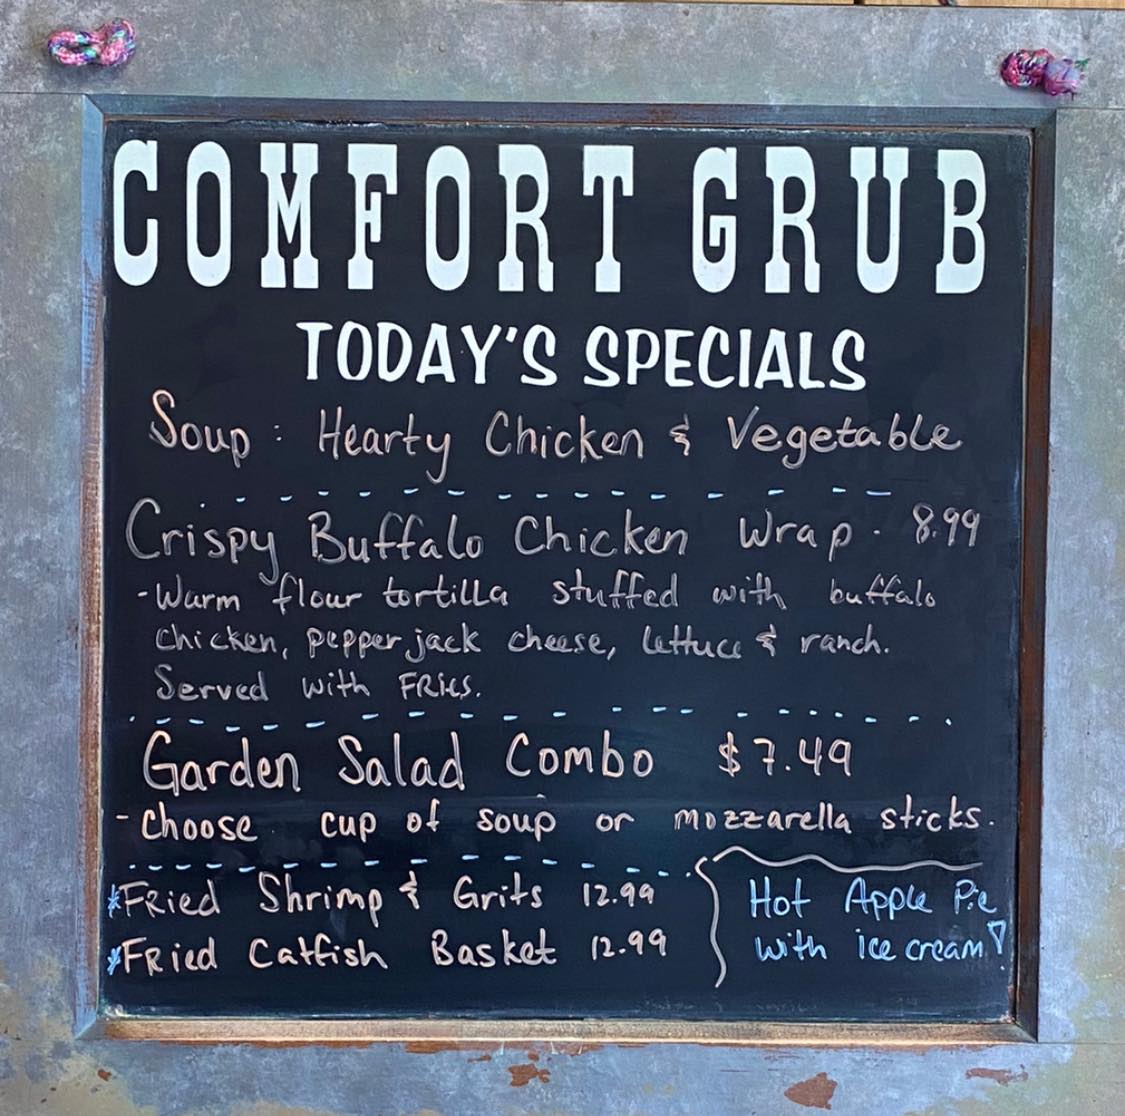 COMFORT GRUB
TODAY'S SPECIALS
Soup: Hearty Chicken & Vegetable
Crispy Buffalo Chicken Wrap. 8.99
-Warm flour tortilla stuffed with buffalo
chicken, pepper jack cheese, lettuce & ranch.
Served with FRies.
Garden Salad Combo $7.49
- Choose cup of soup or mozzarella sticks.
*FRied Shrimp & Grits 12.99
*FRied Catfish Basket 12.99
Hot Apple Pie
with ice cream!